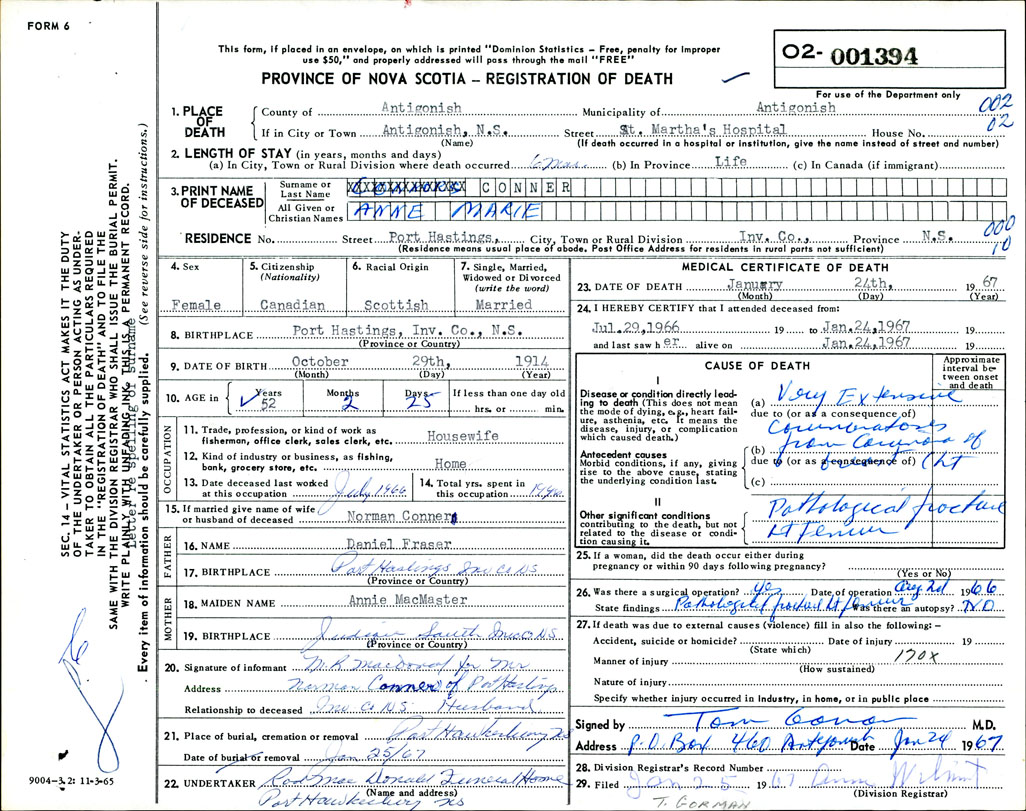 FORM 6
This form, if placed in an envelope, on which is printed "Dominion Statistics – Free, penalty for improper
use $50," and properly addressed will pass through the mail "FREE"
PROVINCE OF NOVA SCOTIA – REGISTRATION OF DEATH
02- 001394
For use of the Department only
002
02
1. PLACE OF DEATH
County of Antigonish Municipality of Antigonish
If in City or Town Antigonish, N.S. Street St. Martha's Hospital House No.
(Name) (If death occurred in a hospital or institution, give the name instead of street and number)
2. LENGTH OF STAY (in years, months and days)
(a) In City, Town or Rural Division where death occurred 6 mos. (b) In Province Life (c) In Canada (if immigrant)
3. PRINT NAME OF DECEASED
Surname or Last Name CONNER
All Given or Christian Names ANNE MARIE
000
10
RESIDENCE No. Street Port Hastings, City, Town or Rural Division Inv. Co., Province N.S.
(Residence means usual place of abode. Post Office Address for residents in rural parts not sufficient)
4. Sex
Female
5. Citizenship
(Nationality)
Canadian
6. Racial Origin
Scottish
7. Single, Married,
Widowed or Divorced
(write the word)
Married
8. BIRTHPLACE Port Hastings, Inv. Co., N.S.
(Province or Country)
9. DATE OF BIRTH October 29th, 1914
(Month) (Day) (Year)
10. AGE in Years 52 Months 2 Days 25 If less than one day old
hrs. or min.
OCCUPATION
11. Trade, profession, or kind of work as
fisherman, office clerk, sales clerk, etc. Housewife
12. Kind of industry or business, as fishing,
bank, grocery store, etc. Home
13. Date deceased last worked
at this occupation July, 1966
14. Total yrs. spent in
this occupation 19 yrs.
15. If married give name of wife
or husband of deceased Norman Conner
FATHER
16. NAME Daniel Fraser
17. BIRTHPLACE Port Hastings Inv Co NS
(Province or Country)
MOTHER
18. MAIDEN NAME Annie MacMaster
19. BIRTHPLACE Judique South Inv Co N.S.
(Province or Country)
20. Signature of informant for Mr
Address Norman Conner of Port Hastings
Relationship to deceased Inv Co NS Husband
21. Place of burial, cremation or removal Port Hawkesbury NS
Date of burial or removal Jan. 25/67
22. UNDERTAKER Rod MacDonald Funeral Home
(Name and address)
Port Hawkesbury NS
MEDICAL CERTIFICATE OF DEATH
23. DATE OF DEATH January 24th, 1967
(Month) (Day) (Year)
24. I HEREBY CERTIFY that I attended deceased from:
Jul.29,1966 19 to Jan.24,1967 19
and last saw her alive on Jan.24,1967 19
CAUSE OF DEATH
Approximate
interval be-
tween onset
and death
I
Disease or condition directly lead-
ing to death (This does not mean
the mode of dying, e.g., heart fail-
ure, asthenia, etc. It means the
disease, injury, or complication
which caused death.)
(a) Very Extensive
due to (or as a consequence of)
Carcinomatosis
Antecedent causes
Morbid conditions, if any, giving
rise to the above cause, stating
the underlying condition last.
(b) from Carcinoma of
due to (or as a consequence of)
breast
(c)
II
Other significant conditions
contributing to the death, but not
related to the disease or condi-
tion causing it.
Pathological fracture
Lt femur
25. If a woman, did the death occur either during
pregnancy or within 90 days following pregnancy?
(Yes or No)
26. Was there a surgical operation? yes Date of operation Aug 2nd 1966
State findings Pathological fracture Lt femur Was there an autopsy? NO
27. If death was due to external causes (violence) fill in also the following: –
Accident, suicide or homicide? Date of injury 19
(State which)
Manner of injury 170X
(How sustained)
Nature of injury
Specify whether injury occurred in Industry, in home, or in public place
Signed by Tom Gorman M.D.
Address P.O. Box 460 Antigonish Date Jan 24 1967
28. Division Registrar's Record Number
29. Filed Jan 25 1967
(Division Registrar)
T. GORMAN
SEC. 14 – VITAL STATISTICS ACT MAKES IT THE DUTY
OF THE UNDERTAKER OR PERSON ACTING AS UNDER-
TAKER TO OBTAIN ALL THE PARTICULARS REQUIRED
IN THE "REGISTRATION OF DEATH" AND TO FILE THE
SAME WITH THE DIVISION REGISTRAR WHO SHALL ISSUE THE BURIAL PERMIT.
WRITE PLAINLY WITH UNFADING INK. THIS IS A PERMANENT RECORD.
Letter re spelling of Surname
Every item of information should be carefully supplied. (See reverse side for instructions.)
9004-3.2: 11-3-65